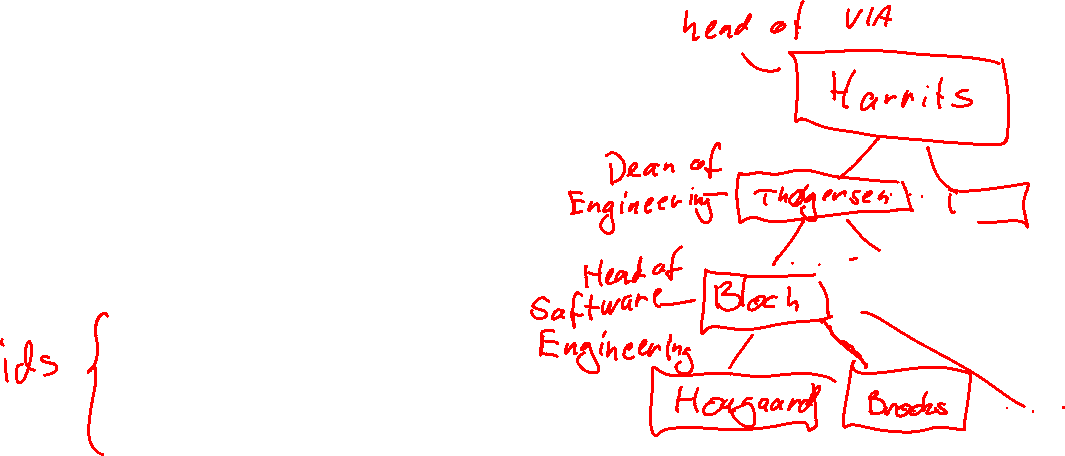 head of VIA
Harrits
Dean of
Engineering
Thøgersen
Head of
Software
Engineering
Bloch
ids
Hougaard